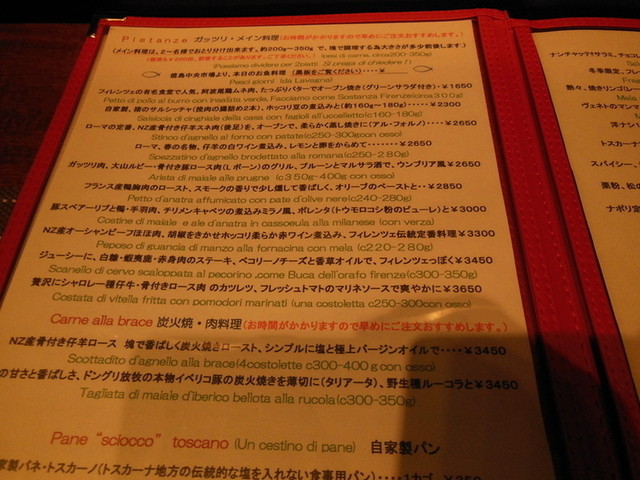 Pietanze ガッツリ・メイン料理(お時間がかかりますので早めにご注文おすすめします。)
(メイン料理は、2～名様でおとり分け出来ます。約200g～350gで、塊で調理する為大きさが多少前後します)
(Possiamo dividere per 2piatti Si prega di chiedere!)
徳島中央市場より、本日のお魚料理 (黒板をご覧ください)・・・・¥
Pesci giorni (da Lavagna)
フィレンツェの有名食堂で人気、阿波尾鶏ムネ肉、たっぷりバターでオーブン焼き(グリーンサラダ付き)・¥1650
Petto di pollo al burro con insalata verde, Facciamo come Sostanza Firenze
自家製、猪のサルシッチャ(挽肉の腸詰め2本)、ホッコリ豆の煮込みと(約160g～180g)・・・・¥2300
Salsiccia di cinghiale della casa con fagioli all'uccelletto(c160-180g)
ローマの定番、NZ産骨付き仔羊スネ肉(後足)を、オーブンで、柔らかく蒸し焼きに(アル・フォルノ)・・・・¥2650
Stinco d'agnello al forno con patate(c250-300gcon osso)
ローマ、春の名物、仔羊の白ワイン煮込み、レモンと卵をからめて・・・・・・・¥2650
Spezzatino d'agnello brodettato alla romana(c250-280g)
ガッツリ肉、大山ルビー・骨付き豚ロース肉(Lボーン)のグリル、プルーンとマルサラ酒で、ウンブリア風¥2650
Arista di maiale alle prugne (c350-400g con osso)
フランス産鴨胸肉のロースト、スモークの香りで少し燻して香ばしく、オリーブのペーストと・・¥2850
Petto d'anatra affumicato con pate d'olive nere(c240-280g)
豚スペアーリブと鴨・手羽肉、チリメンキャベツの煮込みミラノ風、ポレンタ(トウモロコシ粉のピューレ)と¥3000
Costine di maiale e ale d'anatra in cassoeula alla milanese (con verza)
NZ産オーシャンビーフほほ肉、胡椒をきかせホッコリ柔らか赤ワイン煮込み、フィレンツェ伝統定番料理¥3300
Peposo di guancia di manzo alla fornacina con mela (c220-280g)
ジューシーに、白糠・蝦夷鹿・赤身肉のステーキ、ペコリーノチーズと香草オイルで、フィレンツェっぽく¥3450
Scanello di cervo scaloppata al pecorino ,come Buca dell'orafo firenze(c300-350g)
贅沢にシャロレー種仔牛・骨付きロース肉 のカツレツ、フレッシュトマトのマリネソースで爽やかに¥3650
Costata di vitella fritta con pomodori marinati (una costoletta c250-300gcon osso)
Carne alla brace 炭火焼・肉料理(お時間がかかりますので早めにご注文おすすめします。)
NZ産骨付き仔羊ロース 塊で香ばしく炭火焼きロースト、シンプルに塩と極上バージンオイルで・・・・¥3450
Scottadito d'agnello alla brace(4costolette c300-400g con osso)
の甘さと香ばしさ、ドングリ放牧の本物イベリコ豚の炭火焼きを薄切りに(タリアータ)、野生種ルーコラと¥3450
Tagliata di maiale d'iberico bellota alla rucola(c300-350g)
Pane "sciocco" toscano (Un cestino di pane) 自家製パン
家製パネ・トスカーノ(トスカーナ地方の伝統的な塩を入れない食事用パン)・・・・1カゴ
冬季限定、フレ
熱々、焼きリンゴ(
ヴェネトのマンマ
洋ナシ
トスカーナ
スパイシー、
栗粉、松の
ナポリ定